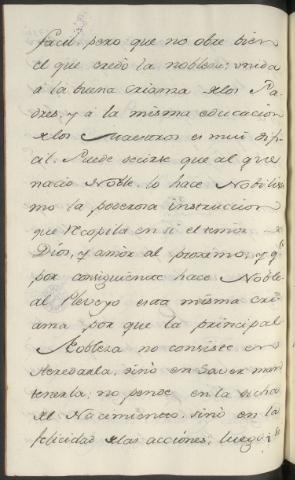 facil, pero que no obre bien
el que eredò la nobleza; unida
á la buena crianza de los Pa-
dres, y á la misma educacion
de los Maestros es mui difi-
al. Puede decirse que al que
nacio Noble lo hace Nobilisi-
mo la poderosa instruccion
que recopila en si el temor de
Dios, y amor al proximo, y q.e
por consiguiente hace Noble
al Pleveyo esta misma cri-
anza por que la principal
Nobleza no consiste en
heredarla, sinò en saver man-
tenerla; no pende en la dicha
del Nacimiento, sinò en la
felicidad de las acciones; luego